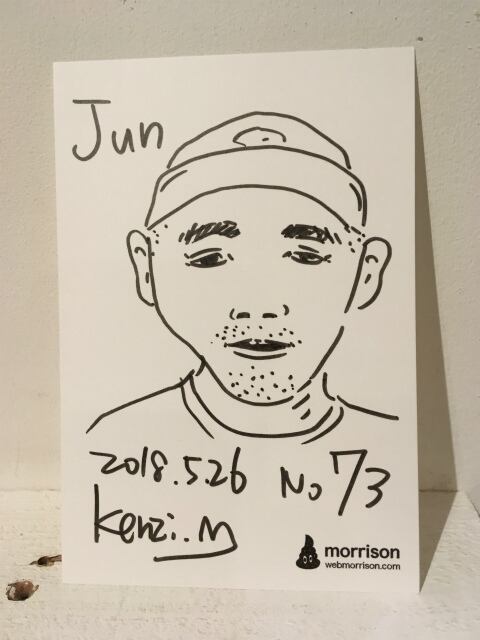 Jun
2018.5.26 No 73
Kenzi.M
morrison
webmorrison.com